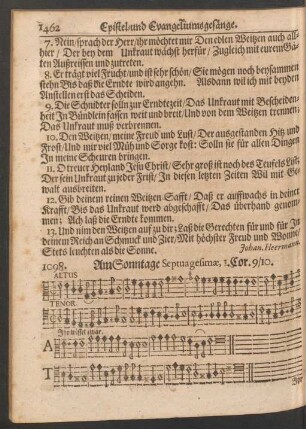 1462 Epistel- und Evangeliumsgesänge.
7. Nein/ sprach der Herr/ ihr möchtet mir Den edlen Weitzen auch all-
hier/ Der bey dem Unkraut wächst herfür/ Zugleich mit eurem Gä-
ten Ausreissen und zutreten.
8. Er trägt viel Frucht/ und ist sehr schön/ Sie mögen noch beysammen
stehn Biß daß die Erndte wird angehn. Alsdann wil ich mit beyden
Anstellen erst das Scheiden.
9. Die Schnitter solln zur Erndtezeit/ Das Unkraut mit Bescheiden-
heit In Bündlein fassen weit und breit/ Und von dem Weitzen trennen/
Das Unkraut muß verbrennen.
10. Den Weitzen/ meine Freud und Lust/ Der ausgestanden Hitz und
Frost/ Und mir viel Müh und Sorge kost: Solln sie für allen Dingen
In meine Scheuren bringen.
11. O treuer Heyland Jesu Christ/ Sehr groß ist noch des Teufels List/
Der sein Unkraut zu jeder Frist/ In diesen letzten Zeiten Wil mit Ge-
walt ausbreiten.
12. Gib deinem reinen Weitzen Safft/ Daß er auffwachs in deiner
Krafft/ Biß das Unkraut werd abgeschafft/ Das überhand genom-
men: Ach laß die Erndte kommen.
13. Und nim den Weitzen auf zu dir; Laß die Gerechten für und für In
deinem Reich an Schmuck und Zier/ Mit höchster Freud und Wonne/
Stets leuchten als die Sonne. Johan. Heermann
1098. Am Sonntage Septuagesimæ, 1. Cor. 9/10.
ALTUS
TENOR.
Ihr wisset zwar.
A
T